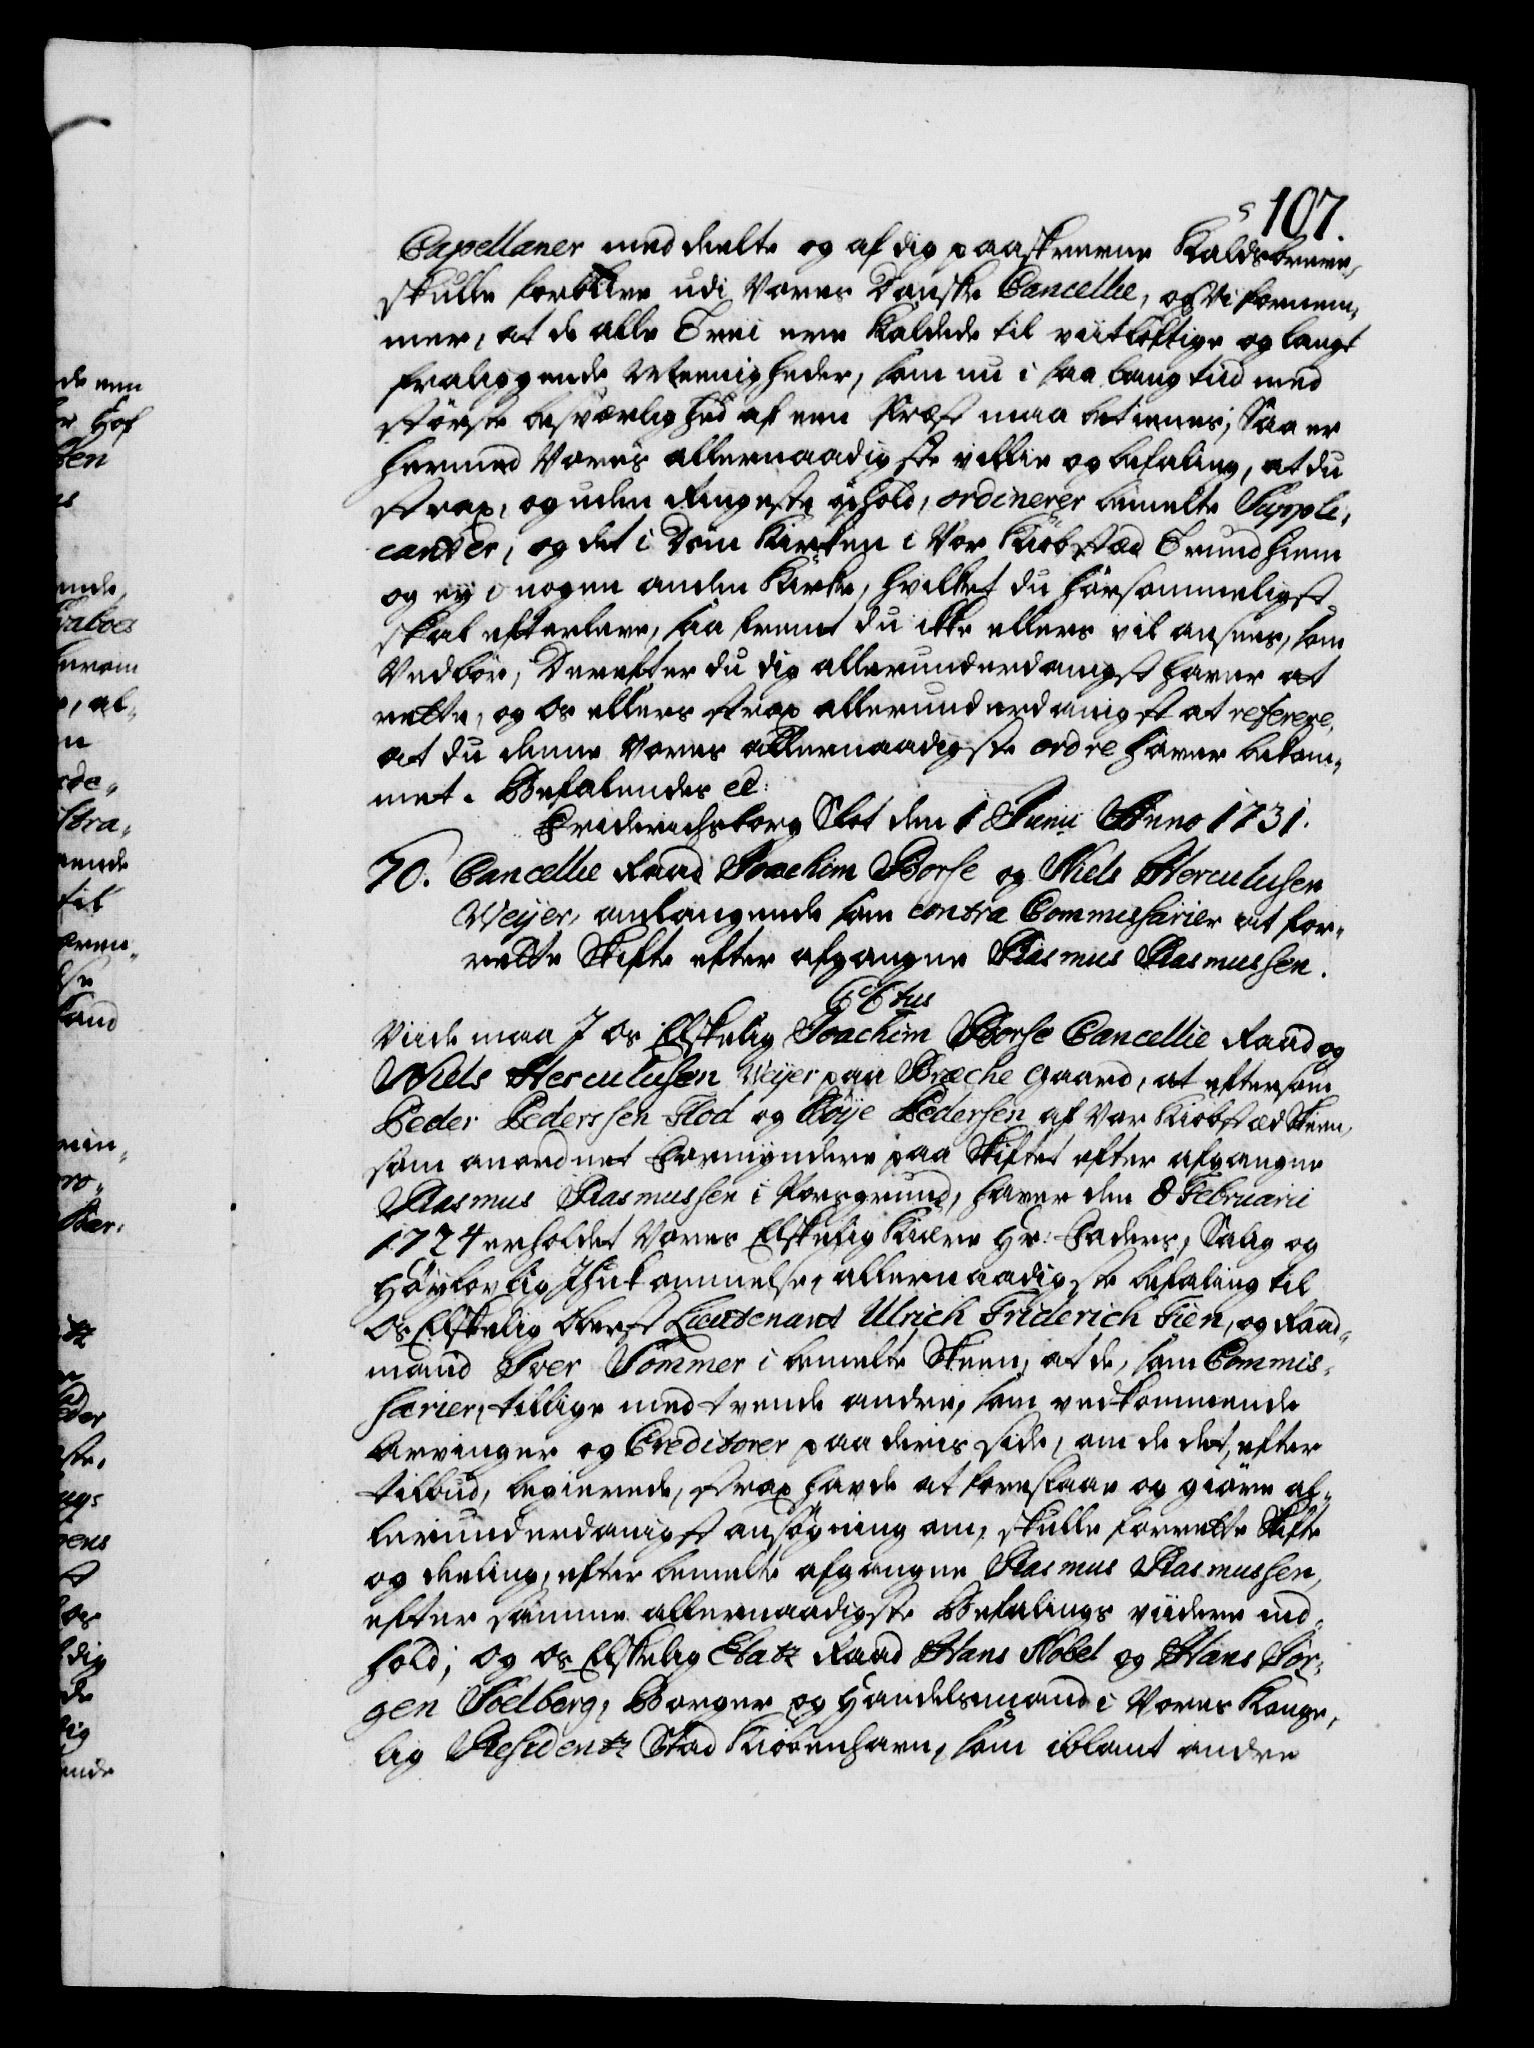 107.
Capellaner meddeelte og af dig paaskrevne Kaldsbreve,
skulle forblive udi Vores Danske Cancellie, og Vi fornem,
mer, at de alle Trei ere kaldede til viitløftige og langt
fraliggende Meenigheder, som nu i saa lang tiid med
største besværlighed af een Præst maa betienes; Saa er
hermed Vores allernaadigste villie og befaling, at du
strax, og uden ringeste ophold, ordinerer bemelte Suppli,
canter, og det i Dom Kirken i Vor Kiøbstæd Trundhiem
og ej i nogen anden Kirke, hvilket du hørsommeligst
skal efterleve, saa fremt du ikke ellers vil ansees, som
Vedbør, Derefter du dig allerunderdanigst haver at
rette, og os ellers strax allerunderdanigst at referere,
at du denne Vores allernaadigste ordre haver bekom,,
met. Befalendes etc:
Friderichsborg Slot den 1 Junii Anno 1731.
70. Cancellie Raad Joachim Borse og Niels Herculusen
Weyer, anlangende som contra Commissarier at for,,
rette Skifte efter afgangne Rasmus Rasmussen.
C 6tus
Viide maa I os Elskelig Joachim Borse Cancellie Raad og
Niels Herculusen Weyer paa Bræche gaard, at eftersom
Peder Pederssen Flod og Røye Pedersen af Vor Kiøbstæd Skeen,
som anordnet Formyndere paa Skiftet efter afgangne
Rasmus Rasmussen i Porsgrund, haver den 8 Februarii
1724 erholdet Vores Elskelig Kiære Hr. Faders, Salig og
Høylovlig Ihukommelse, allernaadigste befaling til
Os Elskelig Oberst Lieutenant Ulrich Friderich Fien, og Raad,,
mand Iver Sommer i bemelte Skeen, at de, som Commis,
sarier, tillige med tvende andre, som vedkommende
Arvinger og Creditorer paa deris side, om de det, efter
tilbud, begierede, strax havde at foreslaae og giøre al,,
lerunderdanigst ansøgning om, skulle forrette Skifte
og deeling, efter bemelte afgangne Rasmus Rasmussen,
efter samme allernaadigste Befalings viidere ind,
hold; og Os Elskelig Etatz Raad Hans Nobel og Hans Jør,
gen Soelberg, Borger og Handelsmand i Vores Konge,
lig Residentz Stad Kiøbenhavn, som iblant andre